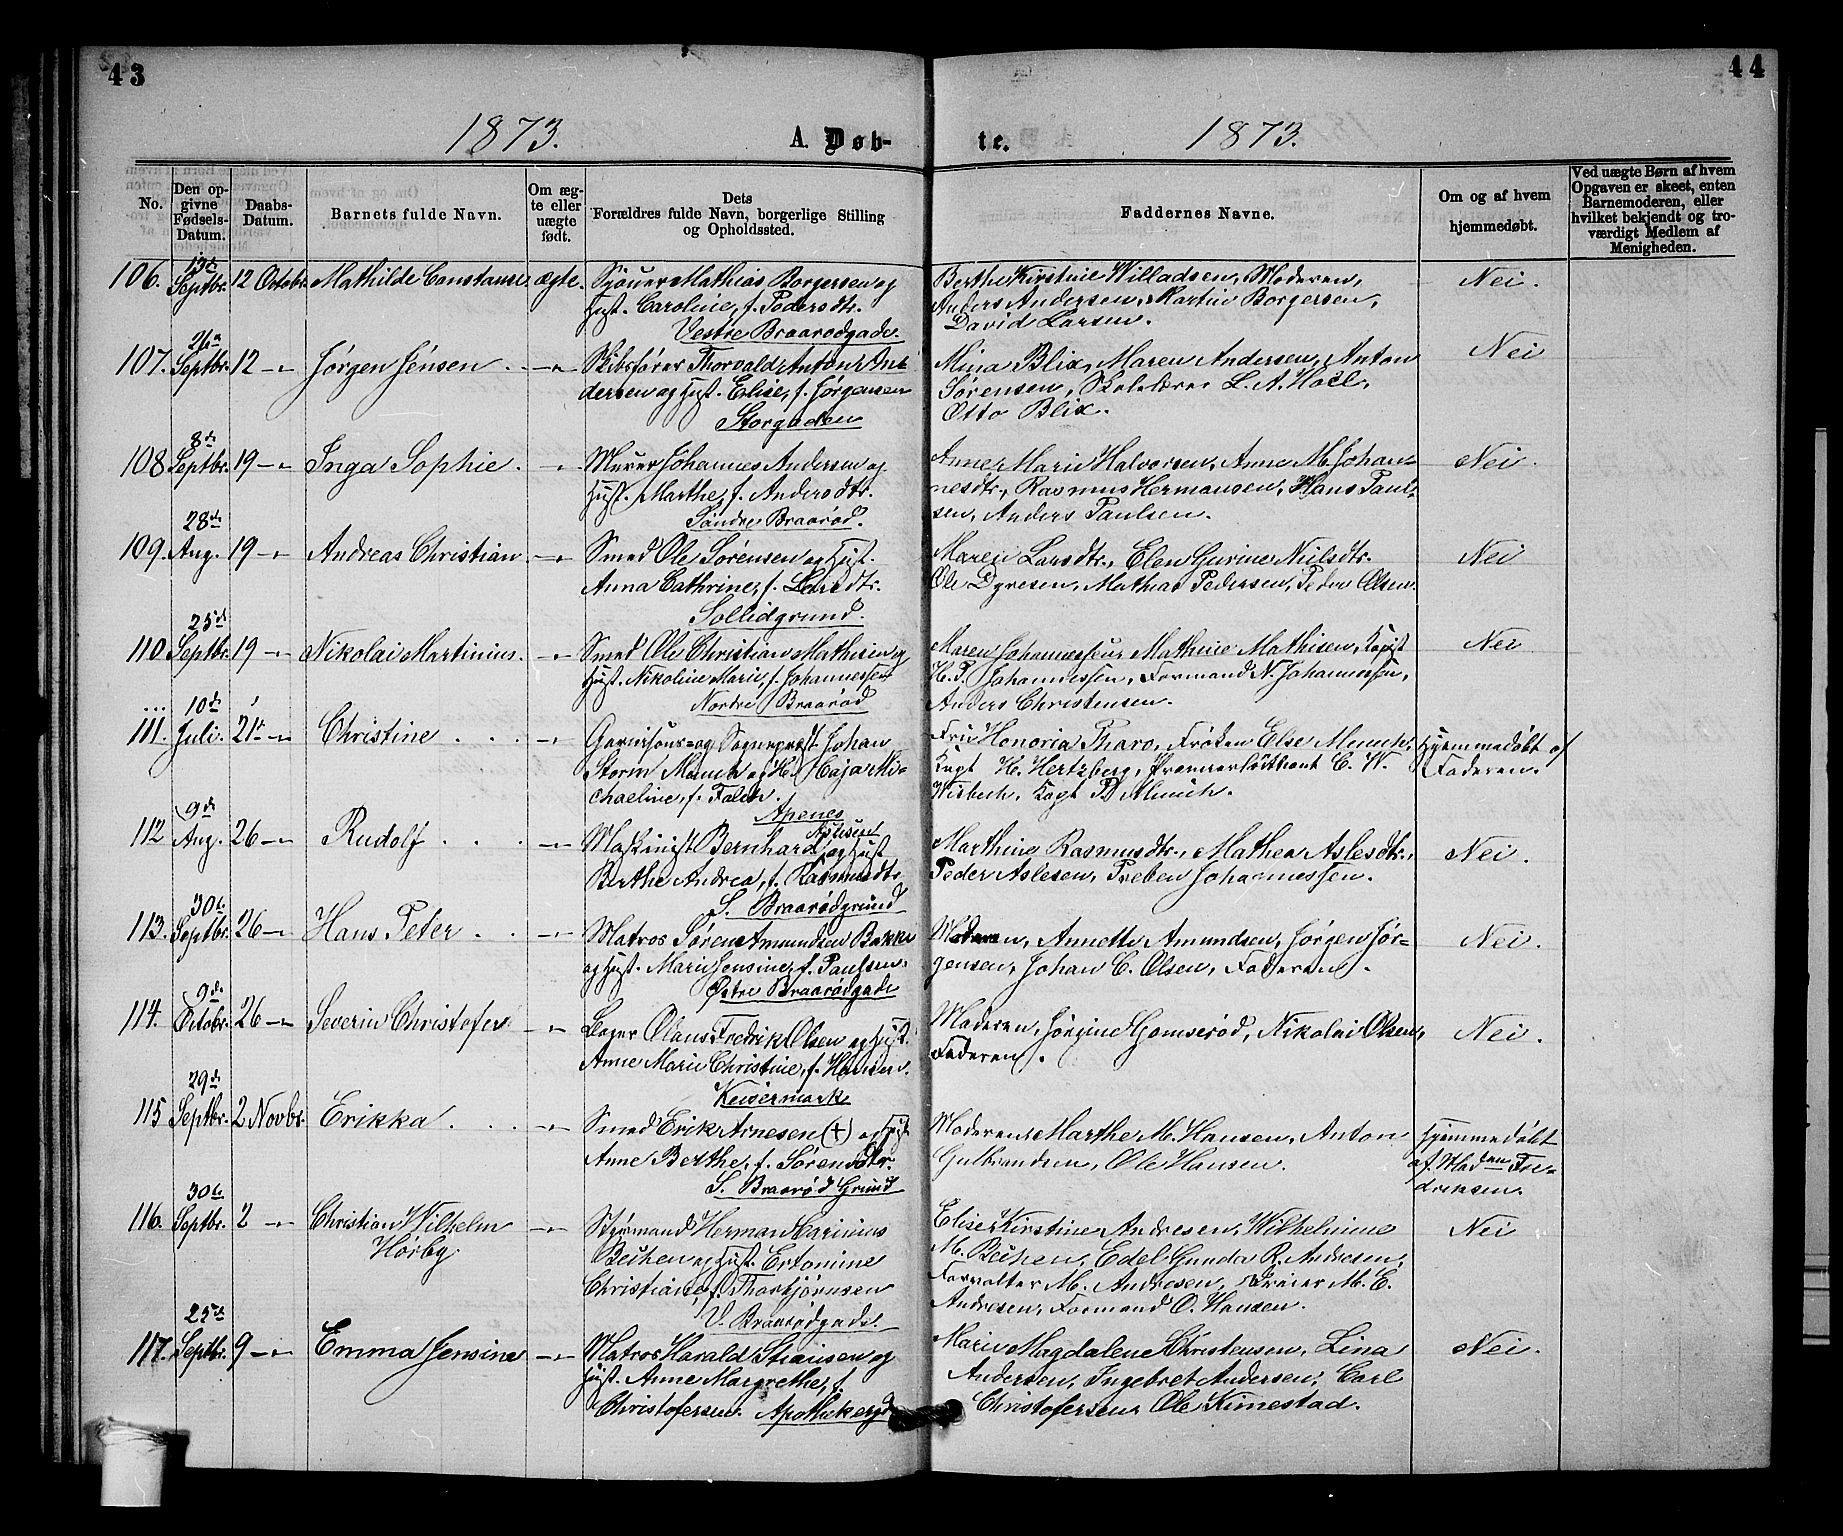 43
44
1873.
A. Døb-
te.
1873.
No.
Den op-
givne
Fødsels-
Datum.
Daabs-
Datum.
Barnets fulde Navn.
Om æg-
te eller
uægte
født.
Dets
Forældres fulde Navn, borgerlige Stilling
og Opholdssted.
Faddernes Navne.
Om og af hvem
hjemmedøbt.
Ved uægte Børn af hvem
Opgaven er skeet, enten
Barnemoderen, eller
hvilket bekjendt og tro-
værdigt Medlem af
Menigheden.
106. Septbr. 12 Octobr. Mathilde Constanse ægte.
Sjøuer Mathias Borgersen og
Hust. Caroline, f. Pedersdtr.
Vestre Braarødgade.
Berthe Kirstine Willadsen, Moderen,
Anders Andersen, Martin Borgersen,
David Larsen.
Nei.
107. 26de Septbr. 12 -"- Jørgen Jensen . -"-
Skibsfører Thorvald Anton An-
dersen og Hust. Elise, f. Jørgensen
Storgaden
Mina Blix, Maren Andersen, Anton
Sørensen, Skolelærer L. A. Hoel,
Otto Blix.
Nei
108 8de Septbr. 19 -"- Inga Sophie . -"-
Murer Johannes Andersen og
Hust. Marthe, f. Andersdtr.
Søndre Braarød.
Anne Marie Halvorsen, Anne M. Johan-
nesdtr., Rasmus Hermansen, Hans Paul-
sen, Anders Paulsen.
Nei.
109. 28de Aug. 19 -"- Andreas Christian -"-
Smed Ole Sørensen og Hust.
Anna Cathrine, f. Larsdtr.
Sollidgrund.
Maren Larsdtr., Elen Gurine Nilsdtr.
Ole Dyresen, Mathias Pedersen, Peder Olsen.
Nei
110 25de Septbr. 19 -"- Nikolai Martinius. -"-
Smed Ole Christian Mathisen og
Hust. Nikoline Marie, f. Johannessen
Nordre Braarød
Maren Johannessen, Mathine Mathisen, Kapt
H. P. Johannessen, Formand N. Johannessen,
Anders Christensen.
Nei
111. 10de Juli. 21de -"- Christine . . . -"-
Garnisons- og Sognepræst Johan
Storm Munch og H. Caja Mi-
chaeline, f. Falch.
Apenes
Fru Honoria Tharo, Frøken Else Munch,
Kapt H. Hertzberg, Premierløitnant C. W.
Wisbech, Kapt P. Munch.
Hjemmedøbt af
Faderen.
112 9de Aug. 26 -"- Rudolf . . . -"-
Maskinist Bernhard Aslesen og Hust
Berthe Andrea, f. Rasmusdtr.
S. Braarødgrund
Marthine Rasmusdtr., Mathea Aslesdtr.,
Peder Aslesen, Preben Johannessen.
Nei.
113. 30te Septbr. 26 -"- Hans Peter . . -"-
Matros Søren Amundsen Bakke
og Hust. Marie Jensine, f. Paulsen.
Østre Braarødgade
Moderen, Annette Amundsen, Jørgen Jør-
gensen, Johan C. Olsen, Faderen.
Nei.
114. 9de Octobr. 26 -"- Severin Christofer. -"-
Bager Olaus Fredrik Olsen og Hust.
Anne Marie Christine, f. Hansen.
Keisermark
Moderen, Jørgine Gomserød, Nikolai Olsen,
Faderen.
Nei.
115 29de Septbr. 2 Novbr. Erikka . . . -"-
Smed Erik Arnesen (+) og Hust
Anne Berthe, f. Sørensdtr.
S. Braarød Grund
Moderen, Marthe M. Hansen, Anton
Gulbrandsen, Ole Hansen.
Hjemmedøbt
af Madmen Fre-
driksen.
116. 30te Septbr. 2 -"- Christian Wilhelm -"-
Hørby
Styrmand Herman Marinius
Beichen og Hust. Ertomine
Christiane, f. Thorbjørnsen
V. Braarødgade.
Elise Kirstine Andresen, Wilhelmine
M. Beichen, Edel Gunda R. Andresen,
Forvalter M. Andresen, M. E.
Andresen, Formand O. Hansen.
Nei
117. 25de Septbr. 9 -"- Emma Jensine -"-
Matros Harald Stiansen og
Hust. Anne Margrethe, f.
Christofersen. Apothekergd
Marie Magdalene Christensen, Lina
Andersen, Ingebret Andersen, Carl
Christofersen, Ole Kimestad.
Nei.